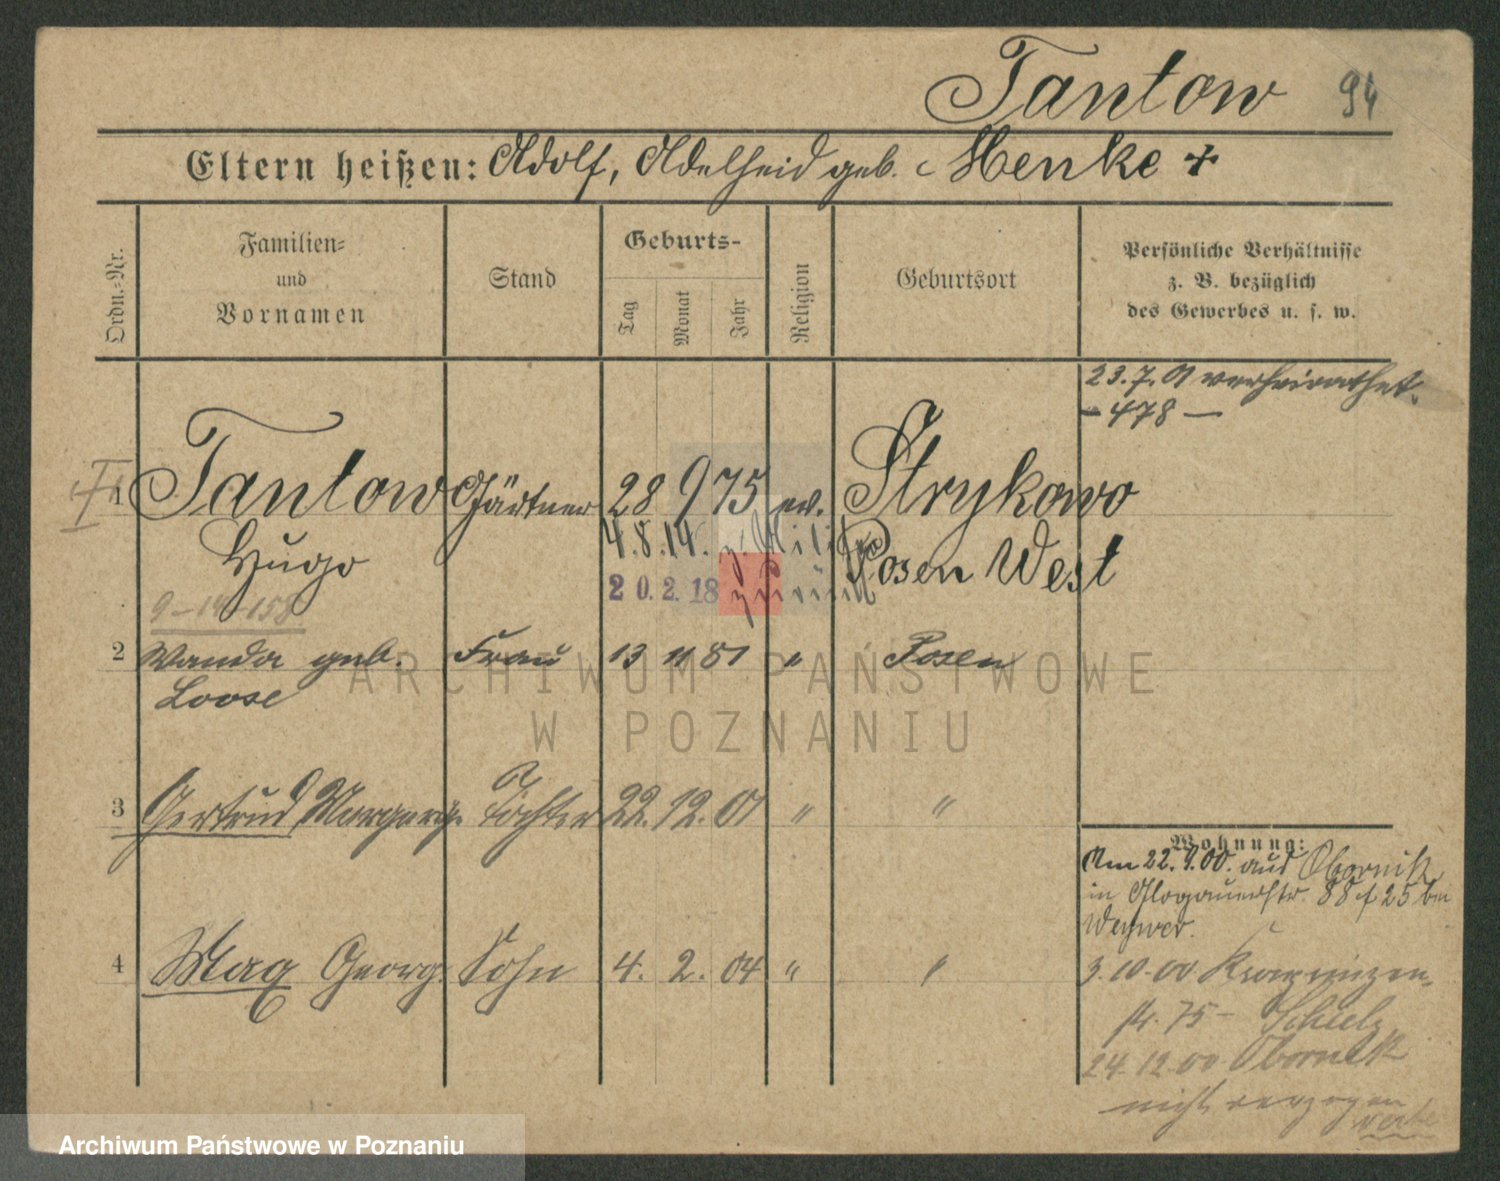 Tantow 94
Eltern heißen: Adolf, Adelheid geb. Henke +
Ordn.-Nr.
Familien-
und
Vornamen
Stand
Geburts-
Tag
Monat
Jahr
Religion
Geburtsort
Persönliche Verhältnisse
z. B. bezüglich
des Gewerbes u. s. w.
23.7.01 verheirathet.
- 478 -
1 Tantow Gärtner 28 9 75 ev. Strykowo
Hugo
4.8.14. z. Milit.
Posen West
20.2.18 zurück
9-14-158
2 Wanda geb. Frau 13 11 81 " Posen
Loose
3 Gertrud Tochter 22. 12. 01 " "
4 Max Georg. Sohn 4. 2. 04 " "
Wohnung:
Am 22.9.00. aus Obornik
in Glogauerstr. 88 f 25 bei
3.10.00
str. 75 -
24.12.00 Obornik
nicht verzogen
ARCHIWUM PAŃSTWOWE
W POZNANIU
Archiwum Państwowe w Poznaniu